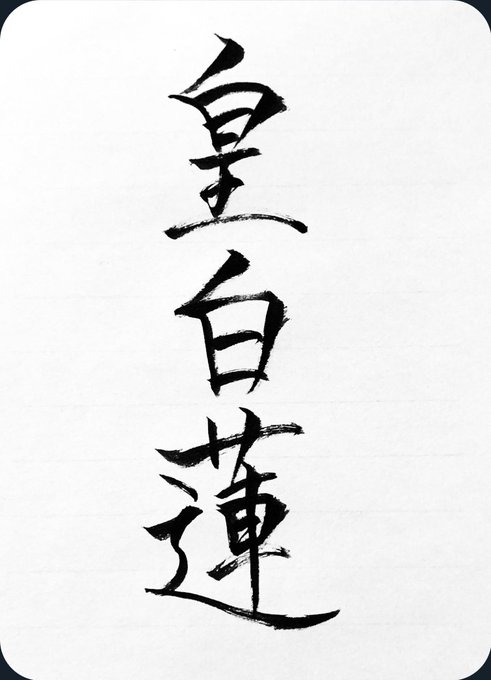 皇白蓮